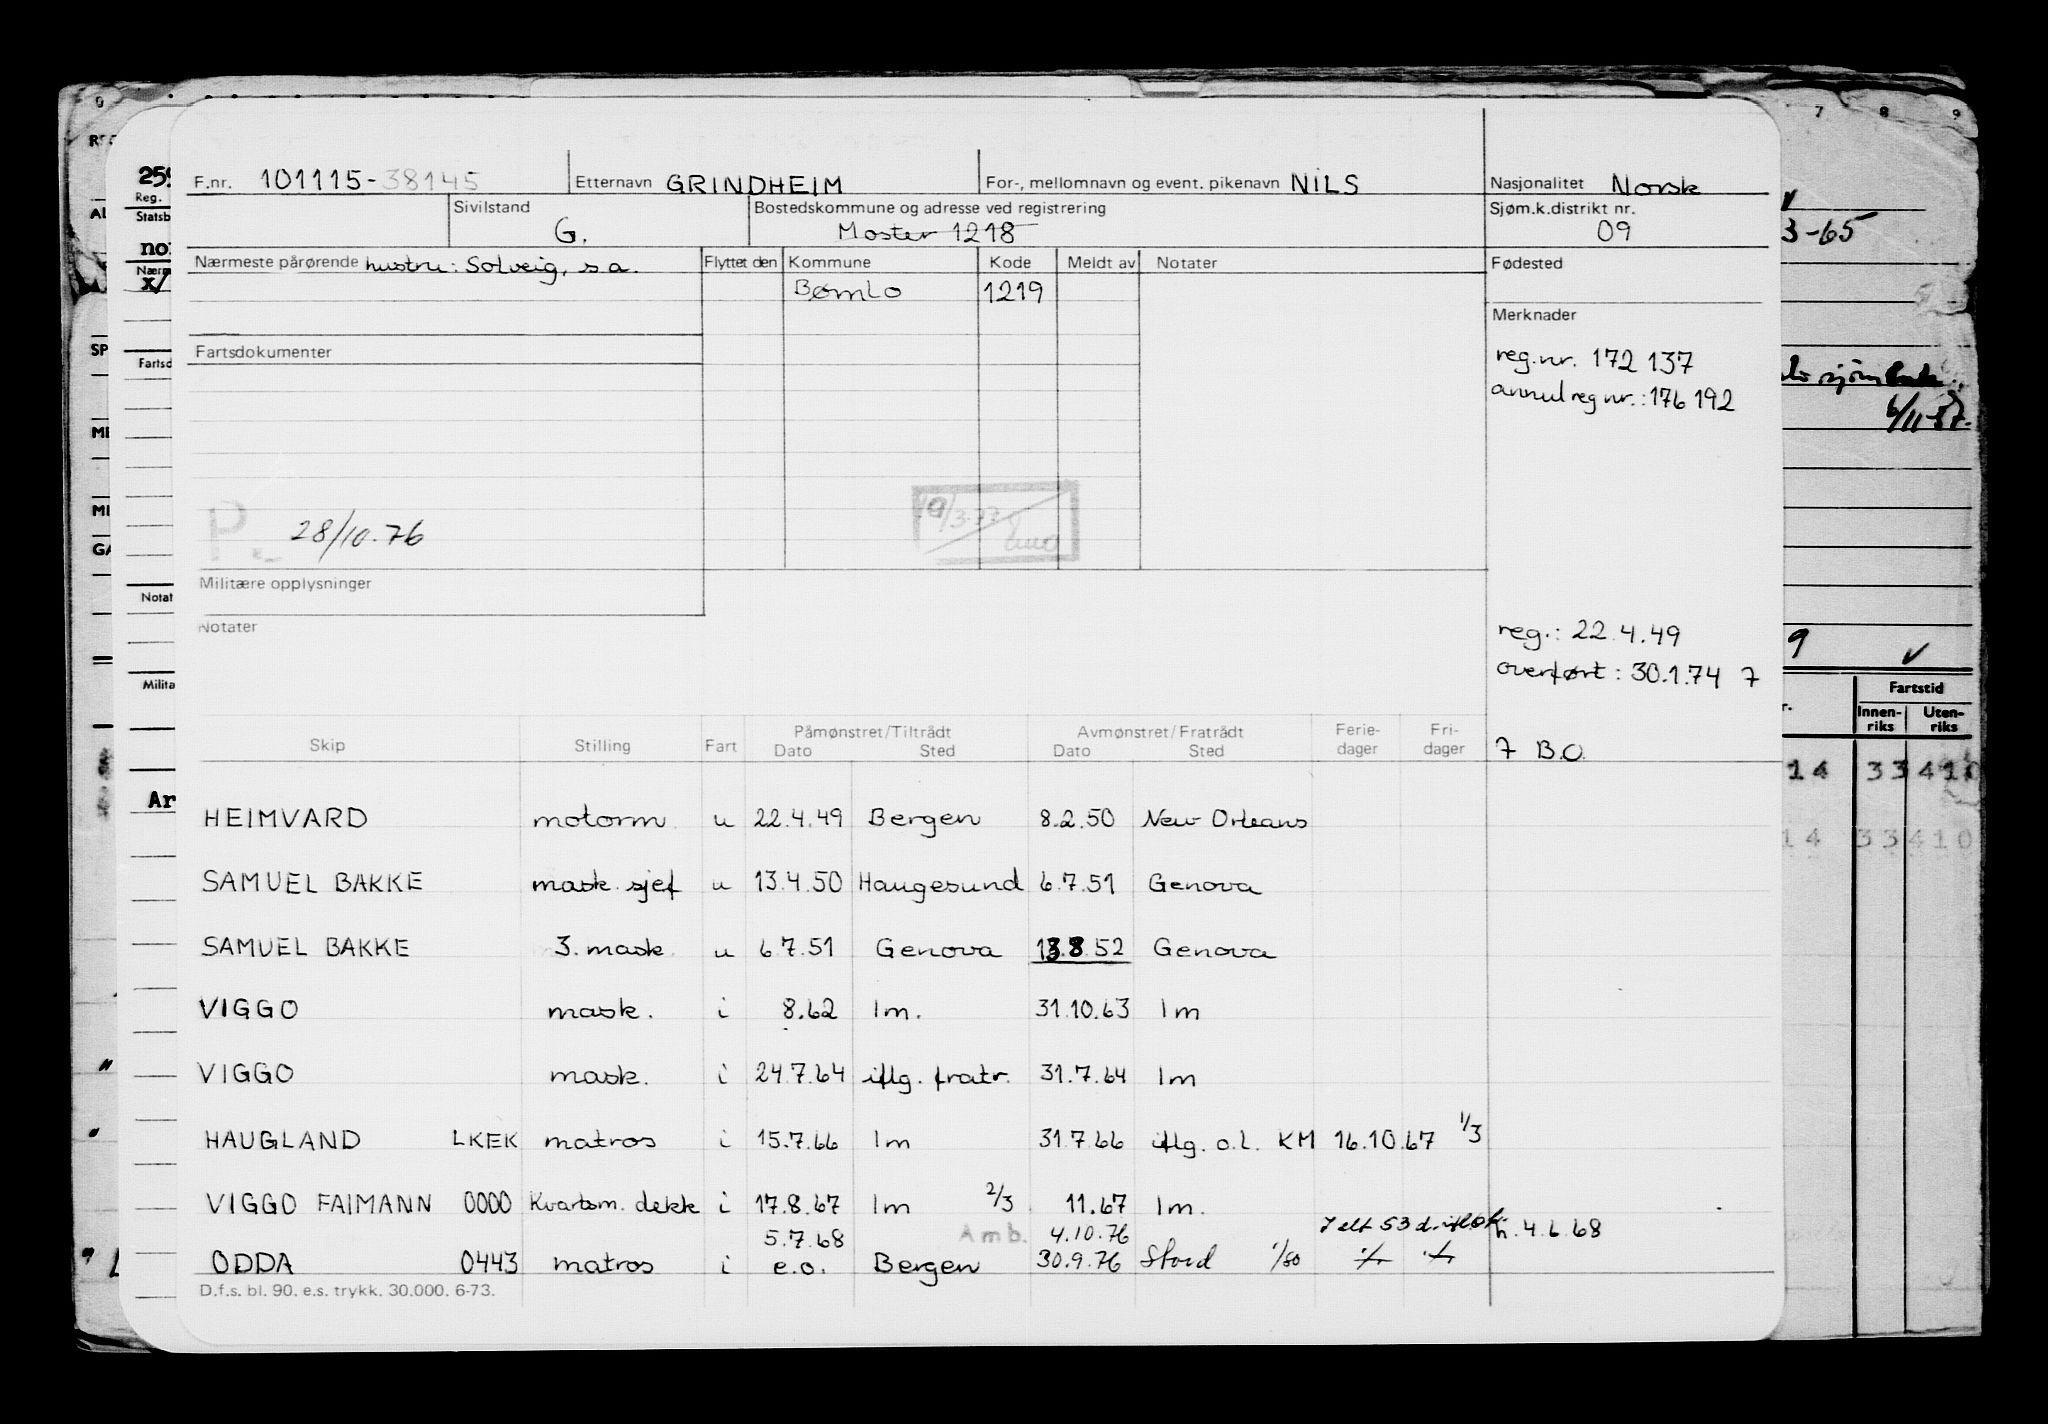 F.nr. 101115-38145 Etternavn GRINDHEIM For-, mellomnavn og event. pikenavn NILS Nasjonalitet Norsk
Sivilstand G. Bostedskommune og adresse ved registrering Moster 1218 Sjøm.k.distrikt nr. 09
Nærmeste pårørende hustru: Solveig, s.a. Flyttet den Kommune Kode Meldt av Notater Fødested
Bømlo 1219
Merknader
Fartsdokumenter
reg.nr. 172 137
annul reg nr.: 176 192
P. 28/10.76
Militære opplysninger
Notater
reg.: 22.4.49
overført: 30.1.74 7
Skip Stilling Fart Påmønstret/Tiltrådt Dato Sted Avmønstret/Fratrådt Dato Sted Ferie-dager Fri-dager
7 B.O.
HEIMVARD motorm. u 22.4.49 Bergen 8.2.50 New Orleans
SAMUEL BAKKE mask. sjef u 13.4.50 Haugesund 6.7.51 Genova
SAMUEL BAKKE 3. mask. u 6.7.51 Genova 13.8.52 Genova
VIGGO mask. i 8.62 lm. 31.10.63 lm
VIGGO mask. i 24.7.64 iflg. fratr. 31.7.64 lm
HAUGLAND LKEK matros i 15.7.66 lm 31.7.66 iflg. o.l. KM 16.10.67 1/3
VIGGO FAIMANN 0000 Kvartsm. dekk i 17.8.67 lm 2/3 11.67 lm.
5.7.68 Amb. 4.10.76 h. 4.6.68
ODDA 0443 matros i e.o. Bergen 30.9.76 Stord 1/80
D.f.s. bl. 90. e.s. trykk. 30.000. 6-73.
259
Reg.
Statsb
Militæ
Notat
3-65
6/11-57.
9
Fartstid
Innen-riks Uten-riks
14 33 410
14 33 410